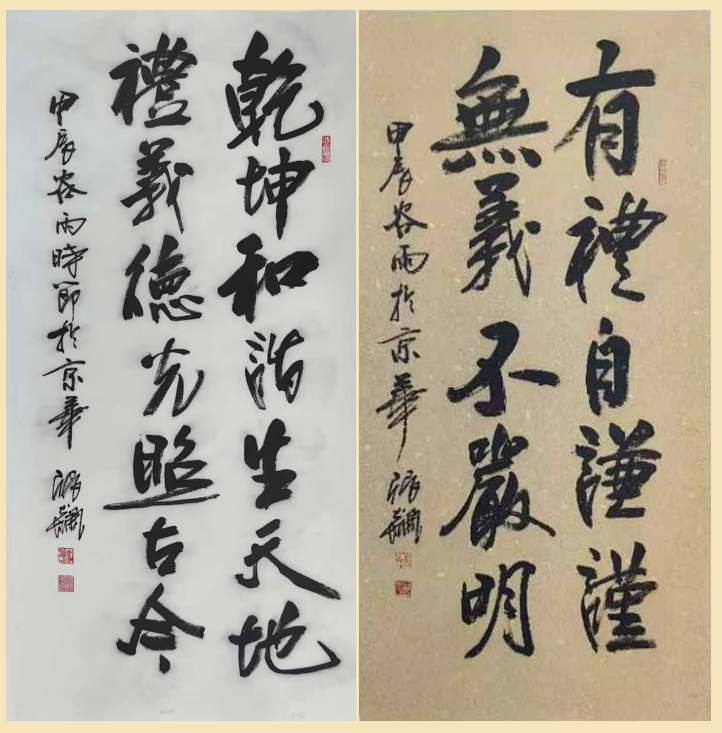 乾坤和諧生天地
禮義德光照古今
甲辰谷雨時節於京華
有禮自謙謹
無義不嚴明
甲辰谷雨於京華